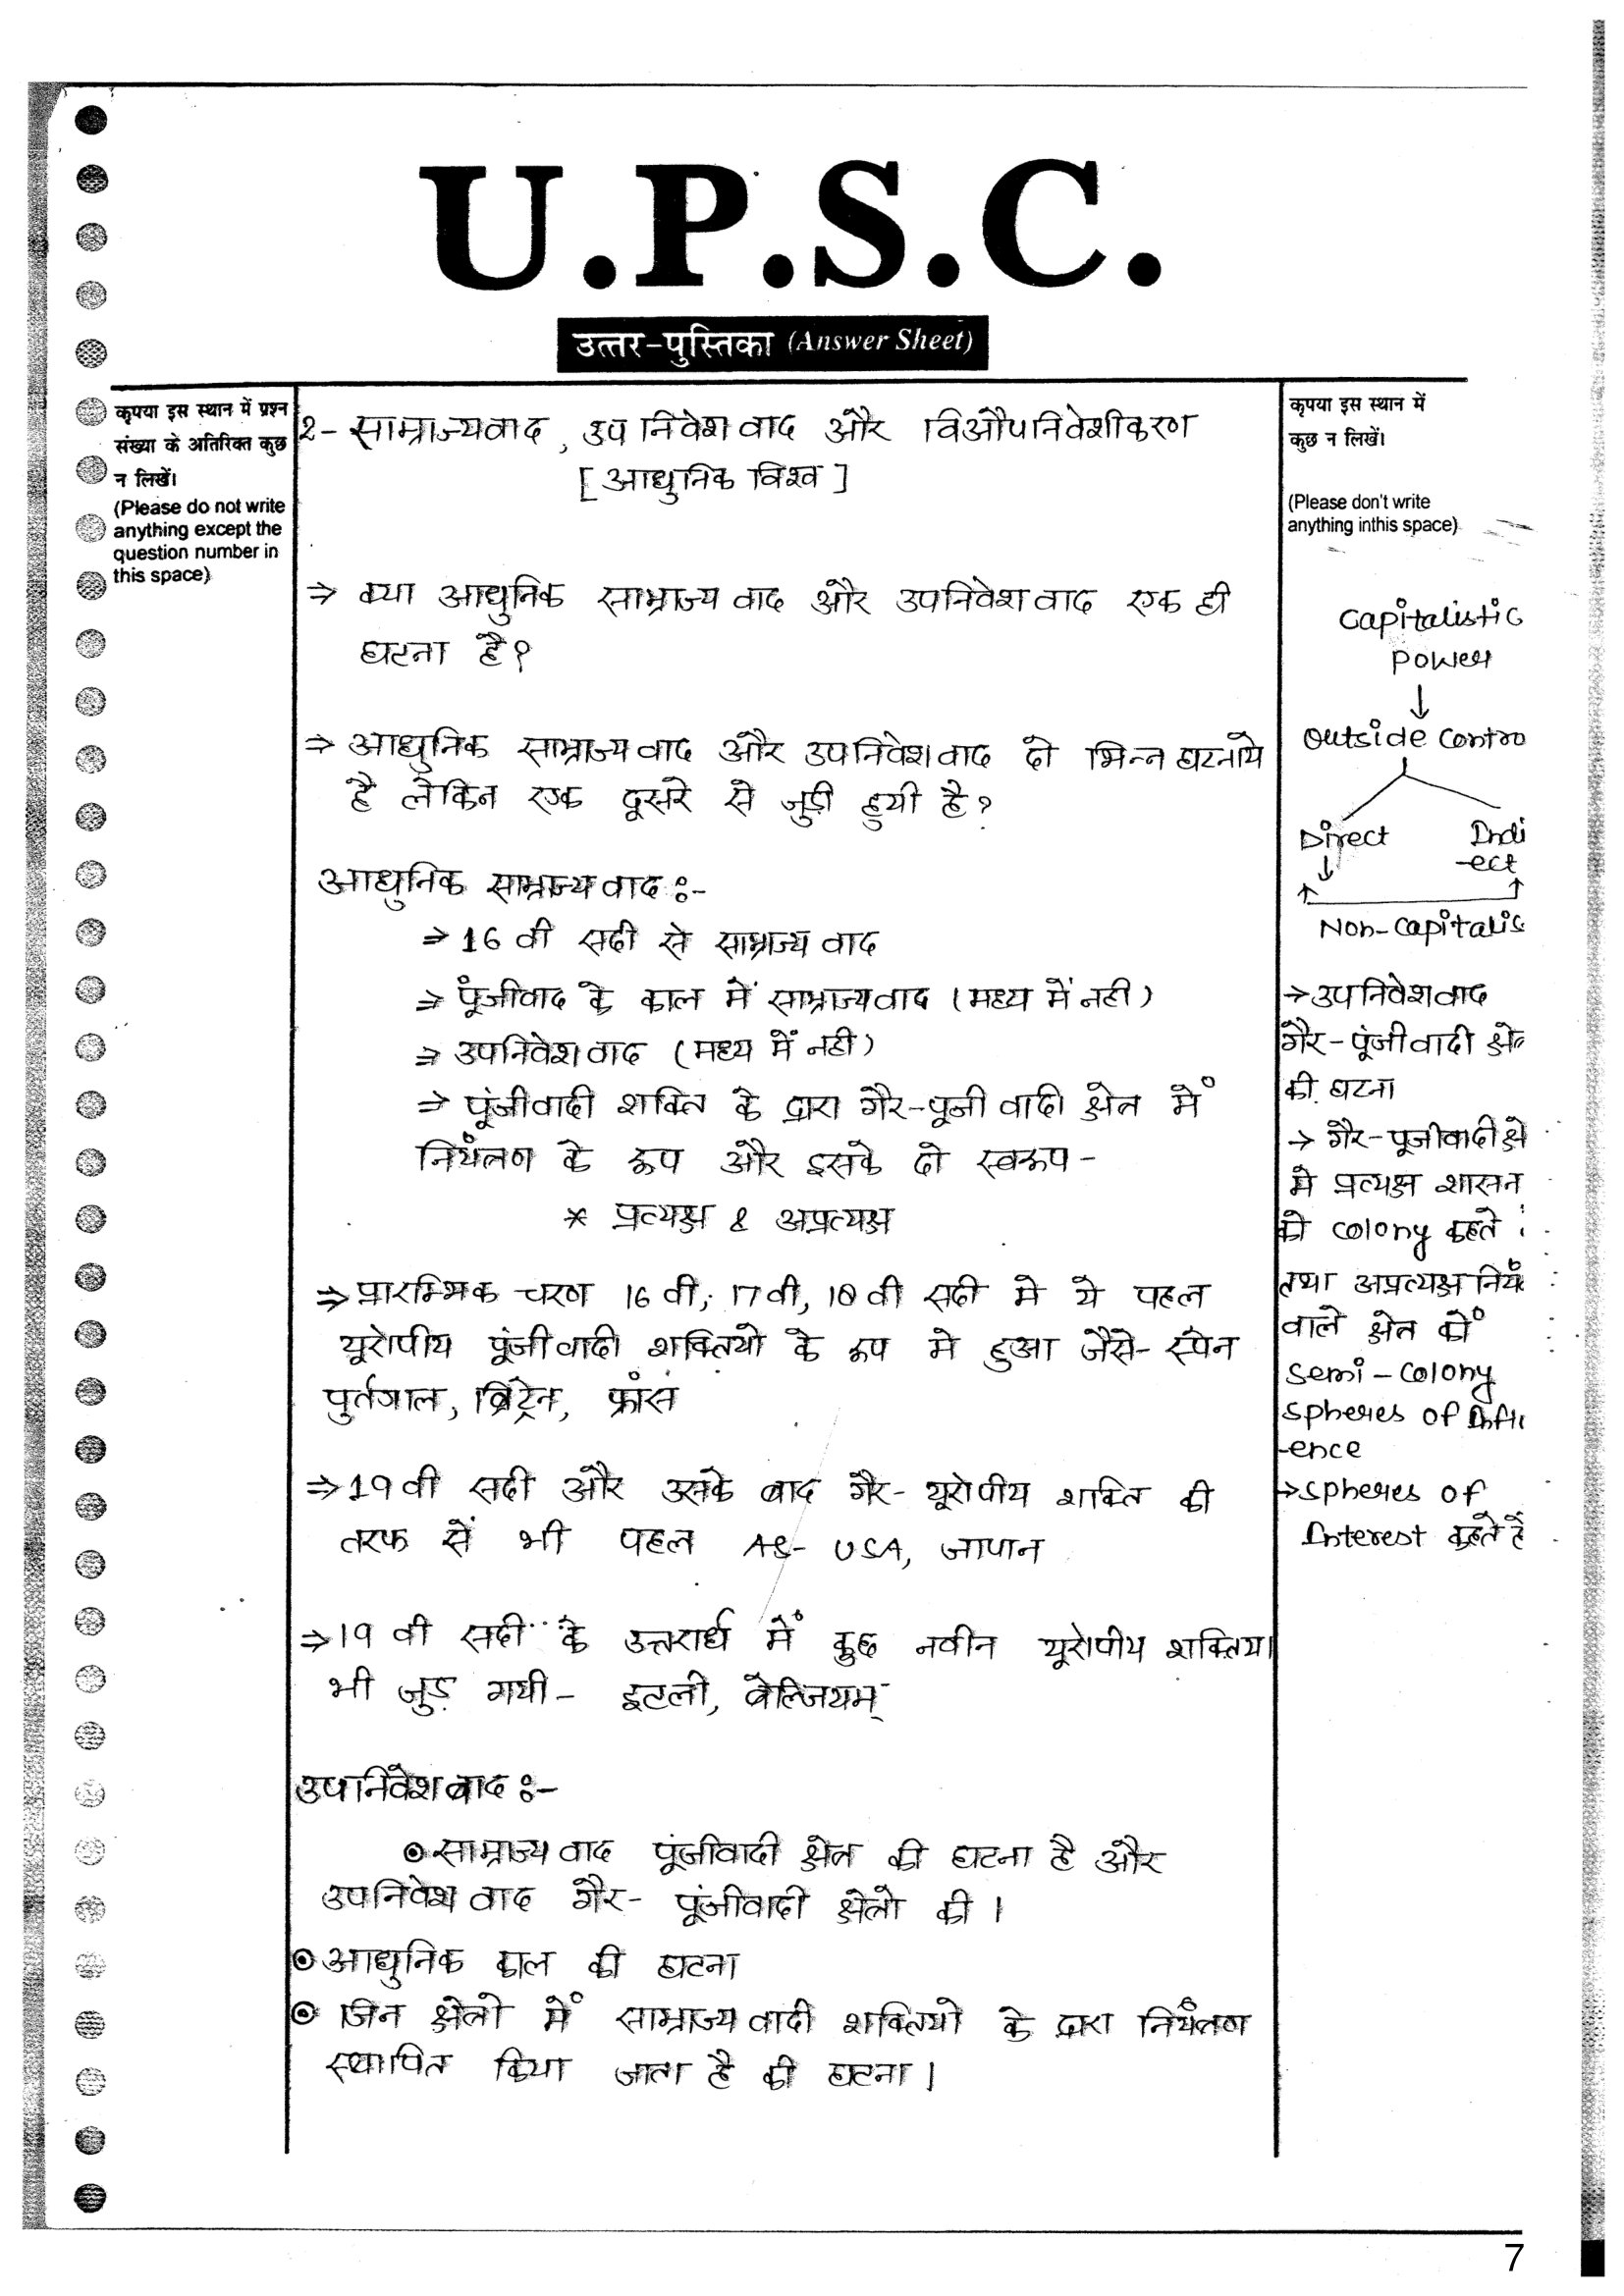 U.P.S.C.
उत्तर-पुस्तिका (Answer Sheet)
कृपया इस स्थान में प्रश्न
संख्या के अतिरिक्त कुछ
न लिखें।
(Please do not write
anything except the
question number in
this space)
2- साम्राज्यवाद, उपनिवेशवाद और विऔपनिवेशीकरण
[आधुनिक विश्व]
⇒ क्या आधुनिक साम्राज्यवाद और उपनिवेशवाद एक ही
घटना है?
⇒ आधुनिक साम्राज्यवाद और उपनिवेशवाद दो भिन्न घटनाये
है लेकिन एक दूसरे से जुड़ी हुयी है?
आधुनिक साम्राज्यवाद :-
⇒ 16 वी सदी से साम्राज्यवाद
⇒ पूंजीवाद के काल में साम्राज्यवाद (मध्य में नही)
⇒ उपनिवेशवाद (मध्य में नही)
⇒ पूंजीवादी शक्ति के द्वारा गैर-पूजीवादी क्षेत्र में
नियंत्रण के रूप और इसके दो स्वरूप -
* प्रत्यक्ष & अप्रत्यक्ष
⇒ प्रारम्भिक चरण 16 वी, 17 वी, 18 वी सदी मे ये पहल
यूरोपीय पूंजीवादी शक्तियो के रूप मे हुआ जैसे- स्पेन
पुर्तगाल, ब्रिट्रेन, फ्रांस
⇒ 19 वी सदी और उसके बाद गैर- यूरोपीय शक्ति की
तरफ सें भी पहल As- USA, जापान
⇒ 19 वी सदी के उत्तरार्ध में कुछ नवीन यूरोपीय शक्तिया
भी जुड़ गयी - इटली, बेल्जियम्
उपनिवेशवाद :-
⊙ साम्राज्यवाद पूंजीवादी क्षेत्र की घटना है और
उपनिवेशवाद गैर- पूंजीवादी क्षेत्रो की ।
⊙ आधुनिक काल की घटना
⊙ जिन क्षेत्रो में साम्राज्यवादी शक्तियो के द्वारा नियंत्रण
स्थापित किया जाता है की घटना ।
कृपया इस स्थान में
कुछ न लिखें।
(Please don't write
anything inthis space)
Capitalistic
Power
↓
Outside Contro
Direct Indi
-ect
Non-Capitalis
→ उपनिवेशवाद
गैर-पूंजीवादी क्षे
की घटना
→ गैर-पूजीवादी क्षे
मे प्रत्यक्ष शासन
को colony कहते
तथा अप्रत्यक्ष नियं
वाले क्षेत्र कों
Semi-Colony
Spheres of Influ
-ence
→ Spheres of
Interest कहते है
7